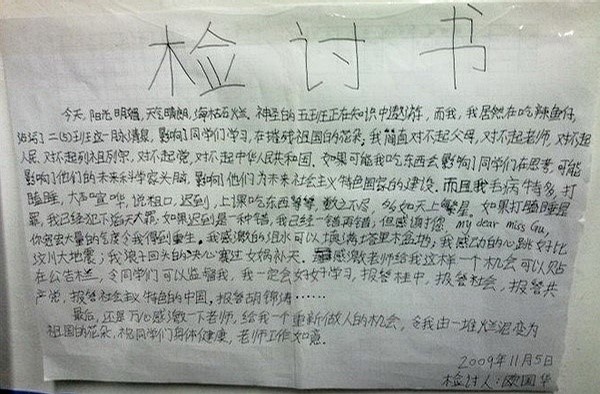 检讨书
今天,阳光明媚,天气晴朗,海枯石烂。神圣的五班正在知识中遨游,而我,我居然在吃辣鱼仔,
玷污了二(5)班这一脉清泉,影响了同学们学习,在摧残祖国的花朵。我简直对不起父母,对不起老师,对不起
人民,对不起列祖列宗,对不起党,对不起中华人民共和国。如果可能我吃东西会影响了同学们在思考,可能
影响了他们的未来科学家头脑,影响了他们为未来社会主义特色国家的建设。而且我毛病特多,打
瞌睡,大声喧哗,说粗口,迟到,上课吃东西等等,数之不尽,多如天上繁星。如果打瞌睡是
罪,我已经犯下滔天大罪。如果迟到是一种错,我已经一错再错;但感谢您,my dear miss Gu,
你宽宏大量的气度令我得到重生。我感激的泪水可以填满塔里木盆地;我感动的心跳好比
汶川大地震;我浪子回头的决心赛过女娲补天。感激老师给我这样一个机会可以贴
在公告栏,令同学们可以监督我,我一定会好好学习,报答桂中,报答社会,报答共
产党,报答社会主义特色的中国,报答胡锦涛……
最后,还是万心感激一下老师,给我一个重新做人的机会,令我由一堆烂泥变为
祖国的花朵,祝同学们身体健康,老师工作如意。
2009年11月5日
检讨人:欧国华